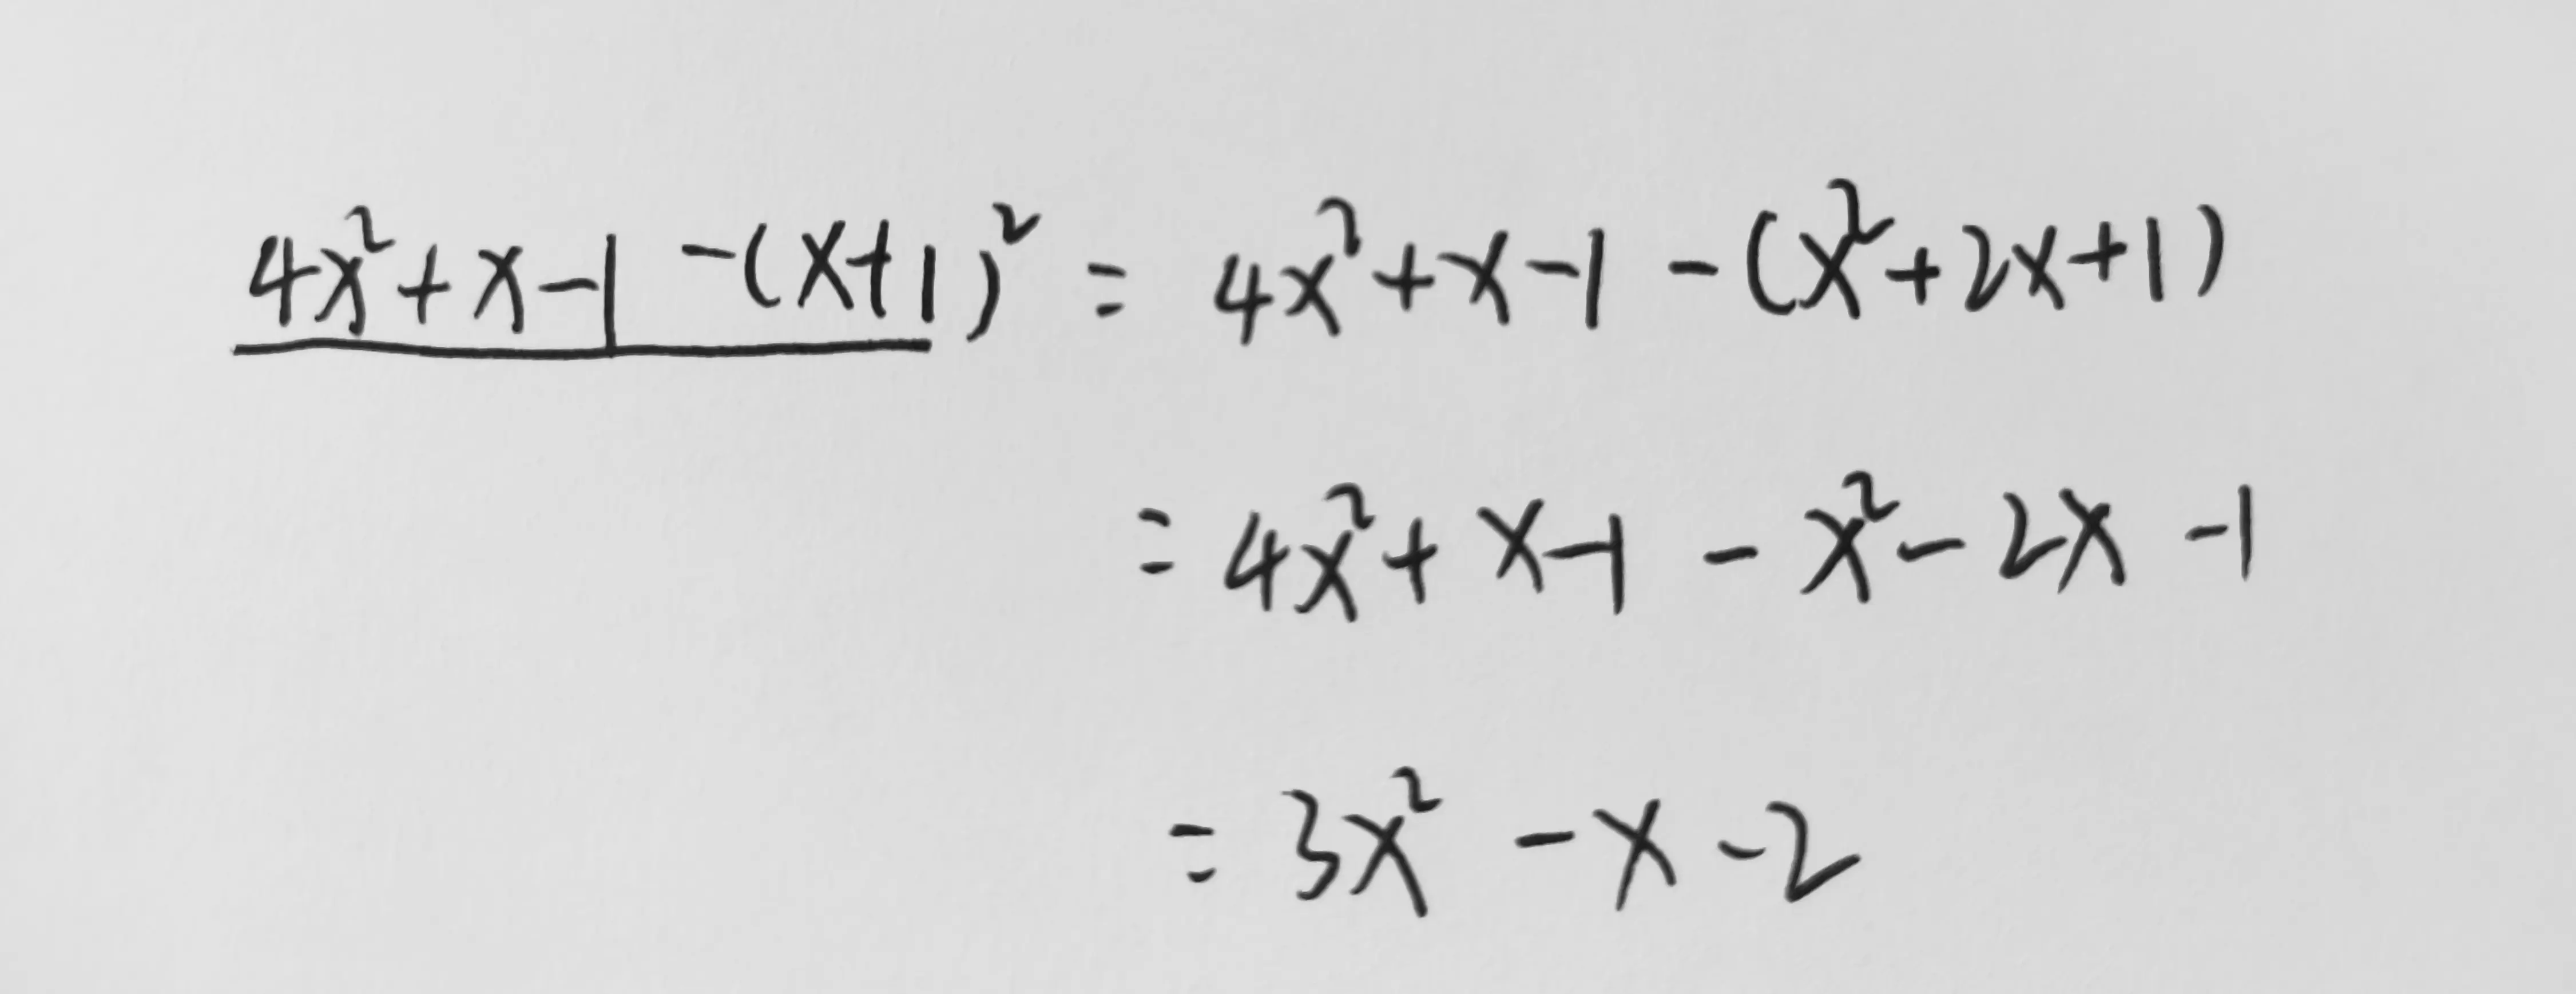 4x² + x - 1 - (x+1)² = 4x² + x - 1 - (x² + 2x + 1)
= 4x² + x - 1 - x² - 2x - 1
= 3x² - x - 2